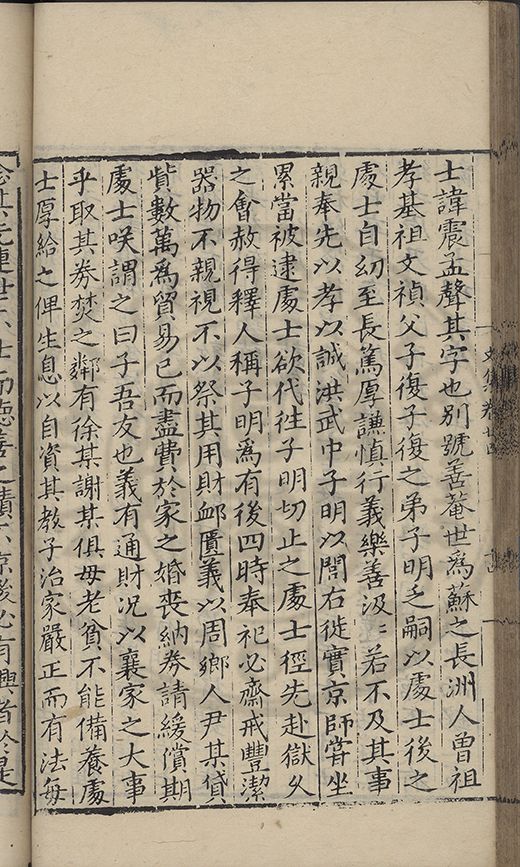 士諱震孟聲其字也别號善菴世爲蘇之長洲人曾祖
孝基祖文禎父子復子復之弟子明乏嗣以處士後之
處士自幼至長篤厚謙慎行義樂善汲〻若不及其事
親奉先以孝以誠洪武中子明以閭右徙實京師嘗坐
累當被逮處士欲代徃子明切止之處士徑先赴獄久
之會赦得釋人稱子明爲有後四時奉祀必齋戒豐潔
器物不親視不以祭其用財䘏匱義以周鄉人尹某貸
貲數萬爲貿易已而盡費於家之婚丧納券請緩償期
處士咲謂之曰子吾友也義有通財况以襄家之大事
乎取其券焚之鄰有徐某謝某俱母老貧不能備養處
士厚給之俾生息以自資其教子治家嚴正而有法每